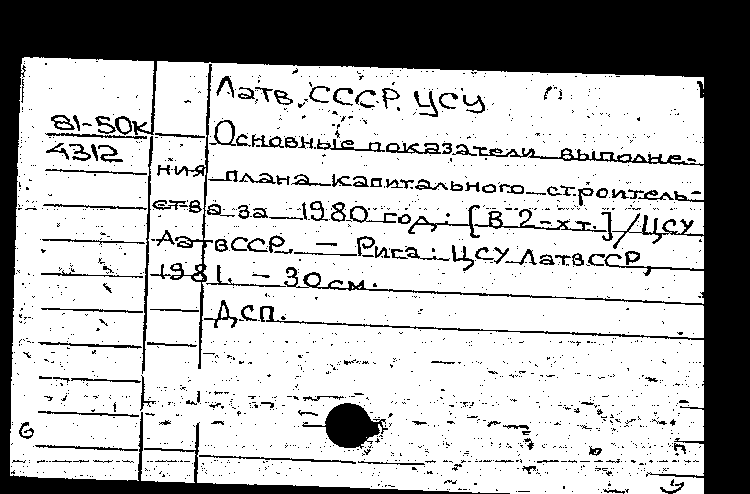 Латв. ССР. ЦСУ
81-50к
4312
Основные показатели выполне-
ния плана капитального строитель-
ства за 1980 год: [В 2-х т.] / ЦСУ
ЛатвССР. — Рига : ЦСУ ЛатвССР,
1981. — 30 см.
ДСП.